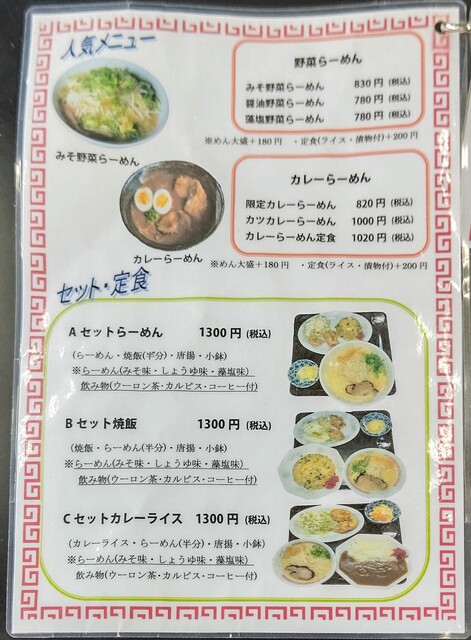 人気メニュー
野菜らーめん
みそ野菜らーめん 830円 (税込)
醤油野菜らーめん 780円 (税込)
藻塩野菜らーめん 780円 (税込)
※めん大盛+180円 ・定食(ライス・漬物付)+200円
みそ野菜らーめん
カレーらーめん
限定カレーらーめん 820円 (税込)
カツカレーらーめん 1000円 (税込)
カレーらーめん定食 1020円 (税込)
※めん大盛+180円 ・定食(ライス・漬物付)+200円
カレーらーめん
セット・定食
Aセットらーめん 1300円 (税込)
(らーめん・焼飯(半分)・唐揚・小鉢)
※らーめん(みそ味・しょうゆ味・藻塩味)
飲み物(ウーロン茶・カルピス・コーヒー付)
Bセット焼飯 1300円 (税込)
(焼飯・らーめん(半分)・唐揚・小鉢)
※らーめん(みそ味・しょうゆ味・藻塩味)
飲み物(ウーロン茶・カルピス・コーヒー付)
Cセットカレーライス 1300円 (税込)
(カレーライス・らーめん(半分)・唐揚・小鉢)
※らーめん(みそ味・しょうゆ味・藻塩味)
飲み物(ウーロン茶・カルピス・コーヒー付)